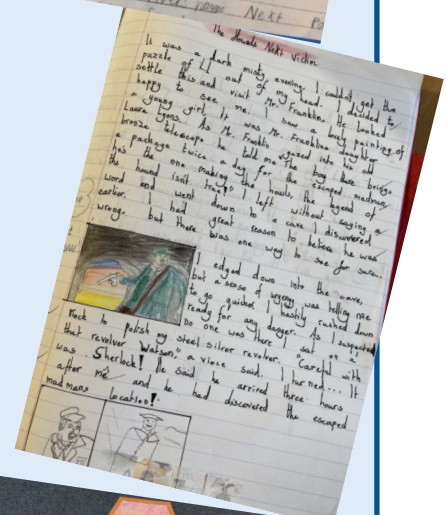 Next
The Hounds Next Victim
It was a dark misty evening. I couldn't get the
puzzle of LL out of my head. I decided to
settle this and visit Mr. Franklin. He looked
happy to see me. I saw a lovely painting of
a young girl. It was Mr. Franklins daughter
Laura Lyons. As Mr. Franklin gazed into his old
bronze telescope he told me the boy there brings
a package twice a day for the escaped madman,
he's the one making the howls, the legend of
the hound isn't real. I left without saying a
word and went down to a cave I discovered
earlier. I had great reason to believe he was
wrong. but there was one way to see for sure.
I edged down into the cave,
but a sense of urgency was telling me
to go quicker. I hastily rushed down
ready for any danger. As I suspected
no one was there. I sat on a
rock to polish my steel silver revolver. "Careful with
that revolver Watson," a vioce said. I turned... It
was Sherlock! He said he arrived three hours
after me and he had discovered the escaped
madmans location!